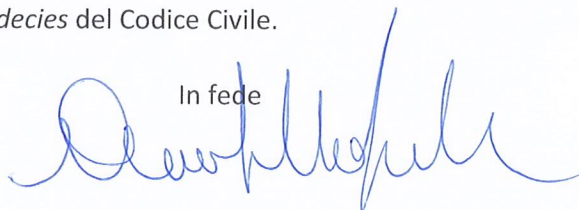 decies del Codice Civile.
In fede